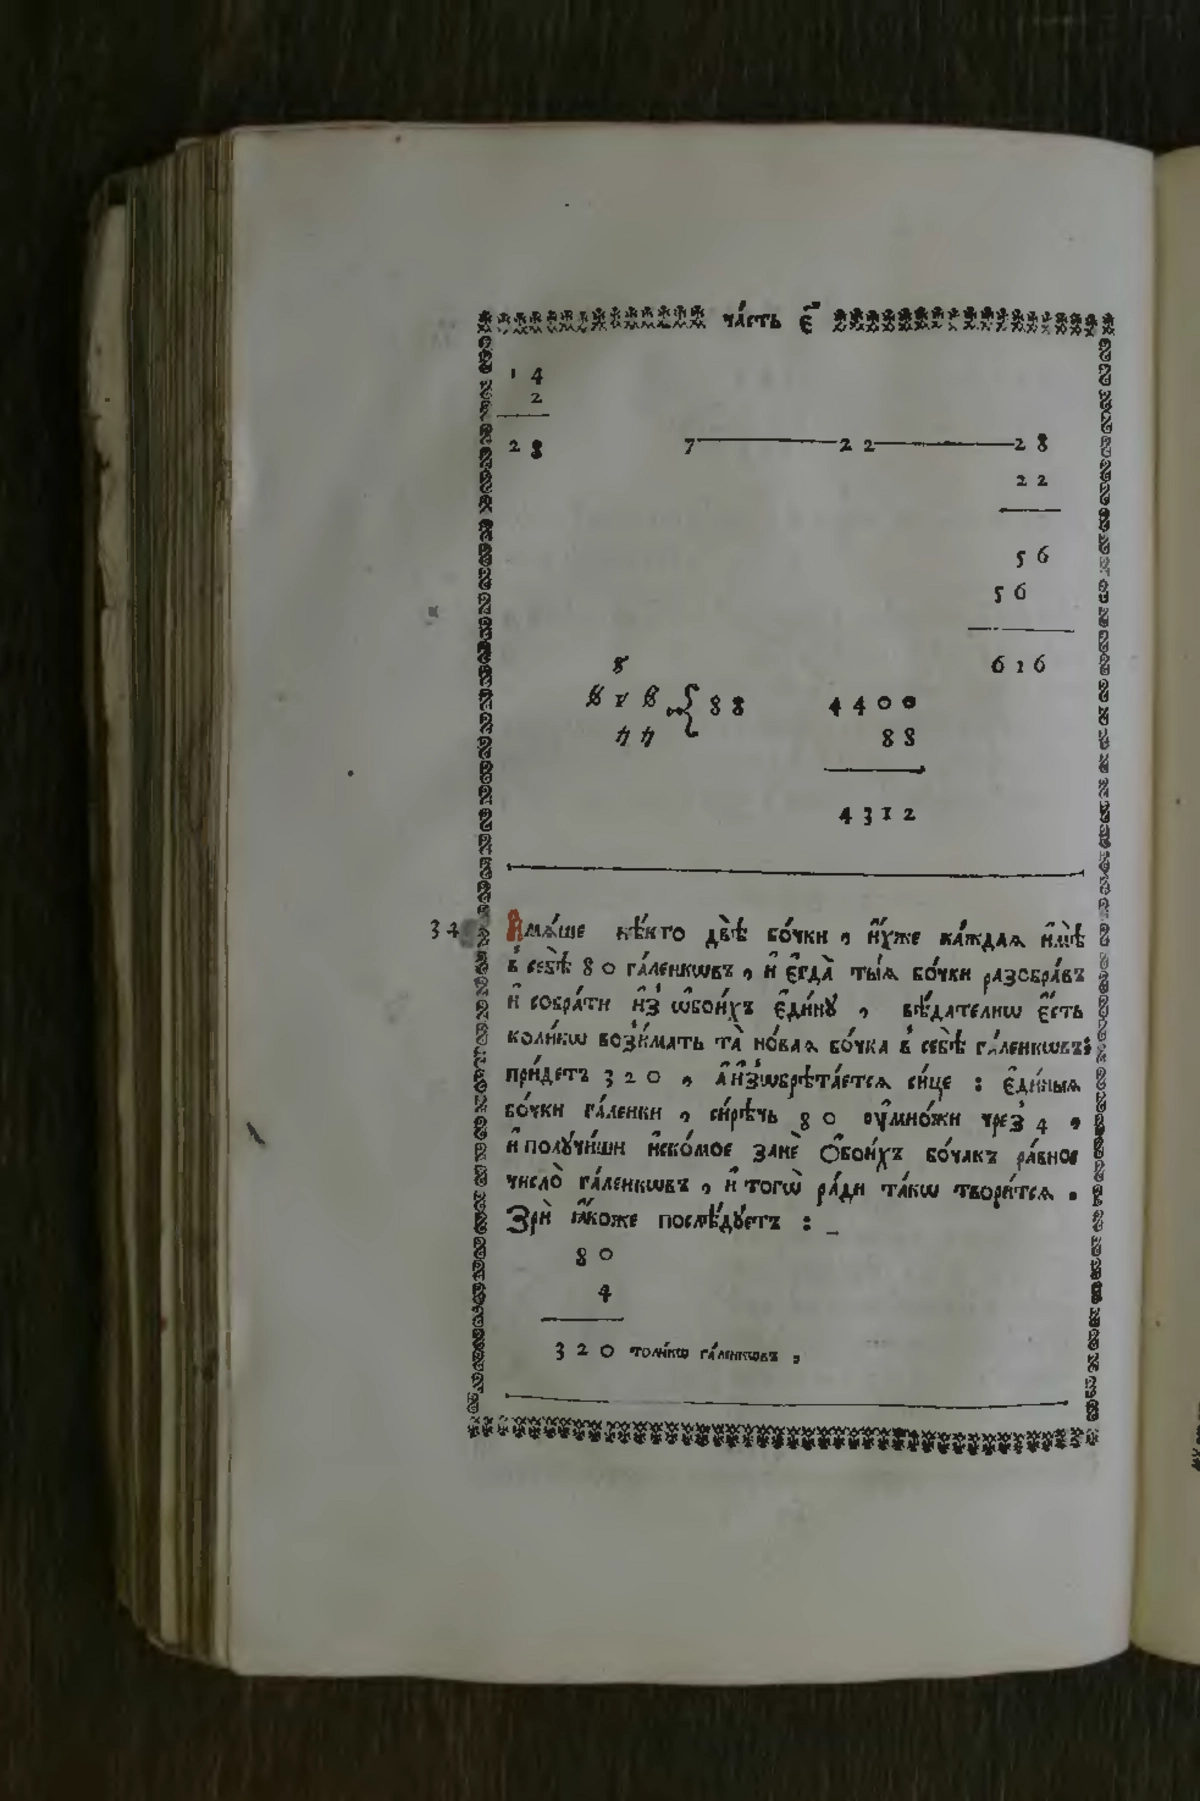 ча́сть є҃
14
2
28 7 22 28
22
56
56
616
8
616 { 88 4400
77 88
4312
34 И҆мѧ́ше нѣ́кто двѣ̀ бо́чки, и҆́хже ка́ждаѧ и҆мѣ̀
в̾ себѣ̀ 80 га́ленкѡвъ, и҆ є҆гда̀ ты́ѧ бо́чки разобра́въ
и҆ собра́ти и҆з̾ ѻ҆бои́хъ є҆ди́нꙋ, вѣ́дателнѡ є҆́сть
коли́кѡ воз̾има́тъ та̀ но́ваѧ бо́чка в̾ себѣ̀ га́ленкѡвъ:
прїи́детъ 320, а҆ и҆з̾ѡбрѣта́етсѧ си́це: є҆ди́ныѧ
бо́чки га́ленки, си́рѣчь 80 ᲂу҆мно́жи чрез̾ 4,
и҆ полꙋ́чиши и҆ско́мое занѐ ѻ҆бои́хъ бо́чакъ ра́вное
число̀ га́ленкѡвъ, и҆ тогѡ̀ ра́ди та́кѡ твори́тсѧ.
Зрѝ ꙗ҆́коже послѣ́дꙋетъ:
80
4
320 толи́кѡ га́ленкѡвъ,